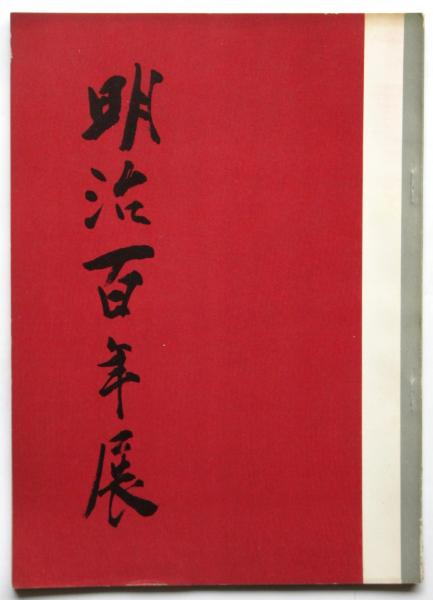 明治百年展